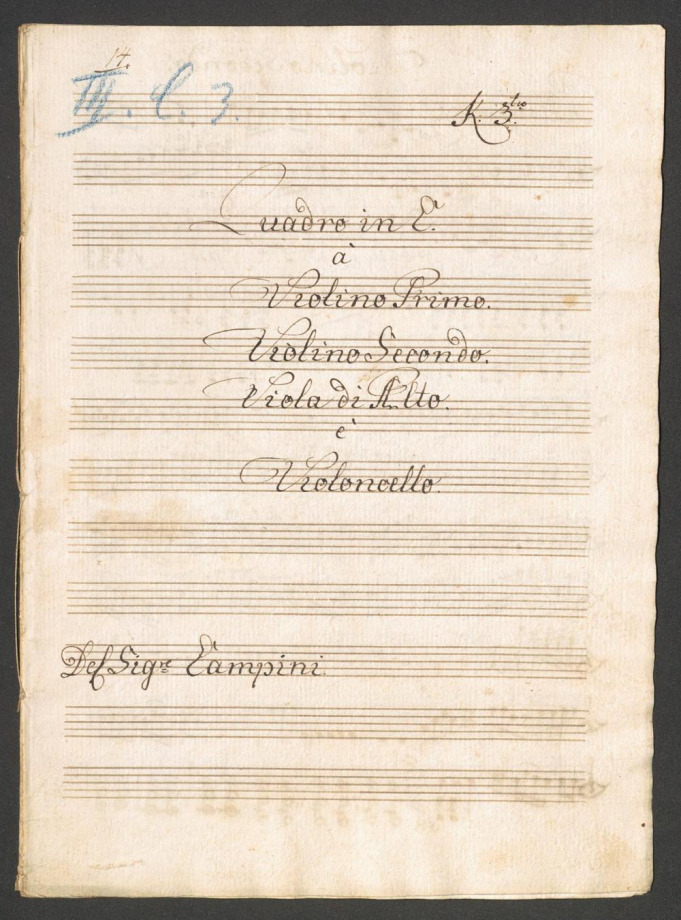 14.
III. C. 3.
K. 3.tio
Quadro in C.
à
Violino Primo.
Violino Secondo.
Viola di Alto.
è
Violoncello.
Del Sigre Campini